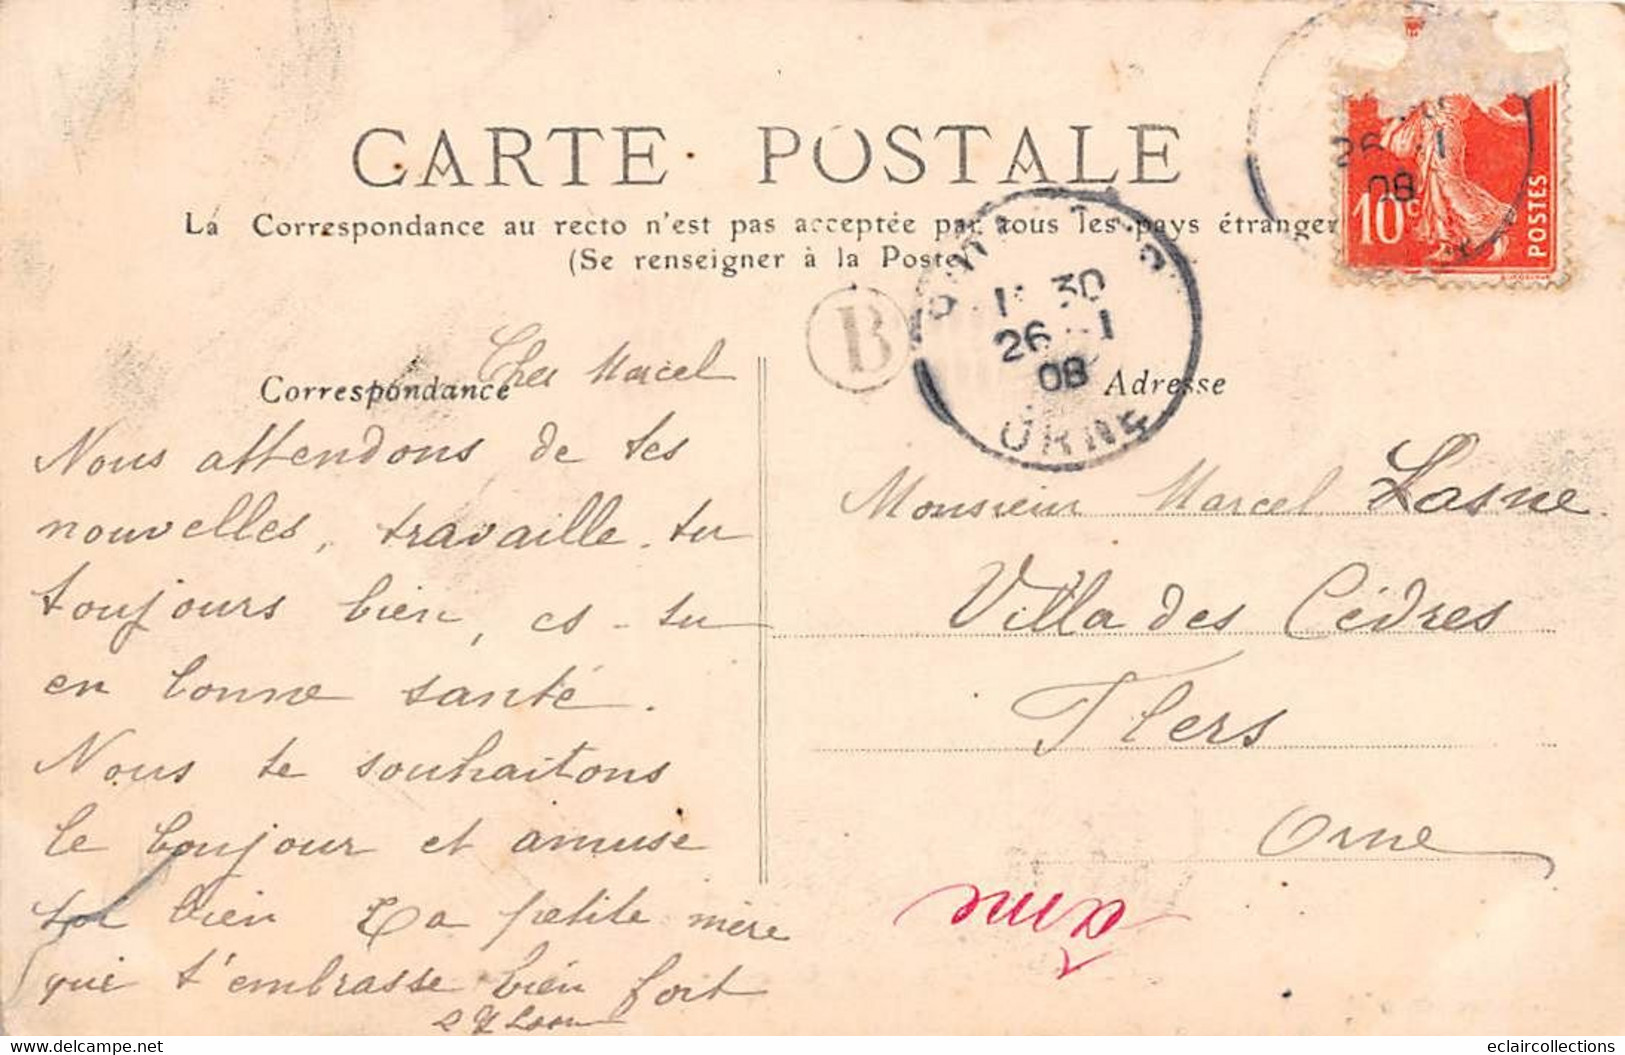 CARTE POSTALE
La Correspondance au recto n'est pas acceptée par tous les pays étranger
(Se renseigner à la Poste)
Correspondance
Adresse
B
30
26 - 1
08
ORNE
26 1
08
10c
POSTES
Cher Marcel
Nous attendons de tes
nouvelles, travaille-tu
toujours bien, es-tu
en bonne santé.
Nous te souhaitons
le bonjour et amuse
toi bien Ta petite mère
qui t'embrasse bien fort
Monsieur Marcel Lasne
Villa des Cèdres
Flers
Orne
eclaircollections
www.delcampe.net